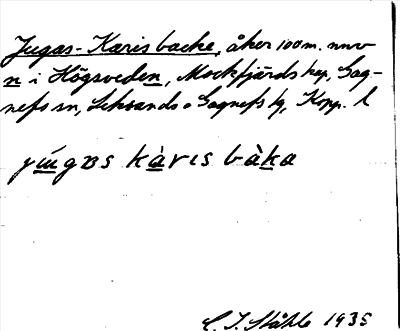 Jugas-Karis backe, åker 100 m. nnv
n i Högsveden, Mockfjärds kap, Gag-
nefs sn, Leksands o Gagnefs tg, Kopp. l
kàris bàka
C. I. Ståhle 1935